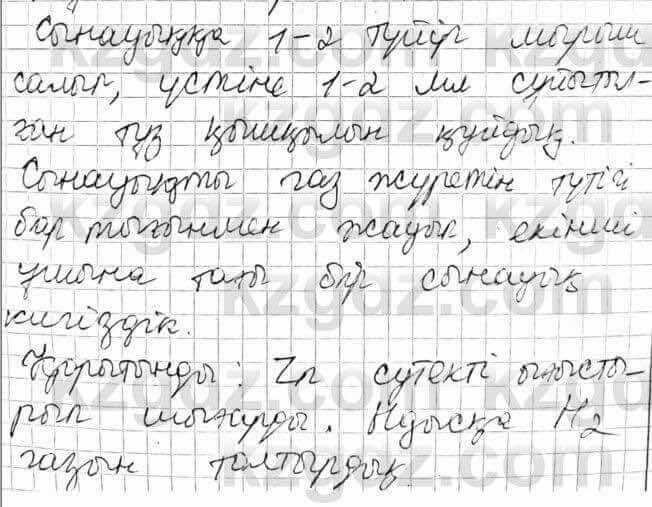 Сынауыққа 1-2 түйір мырыш
салып, үстіне 1-2 мл сұйытыл-
ған тұз қышқылын құйдық.
Сынауықты газ жүретін түтігі
бар тығынмен жауып, екінші
ұшына тағы бір сынауық
кигіздік.
Қорытынды: Zn сутекті ығысты-
рып шығарды. Ыдысқа H2
газын толтырдық.
kzgdz.com